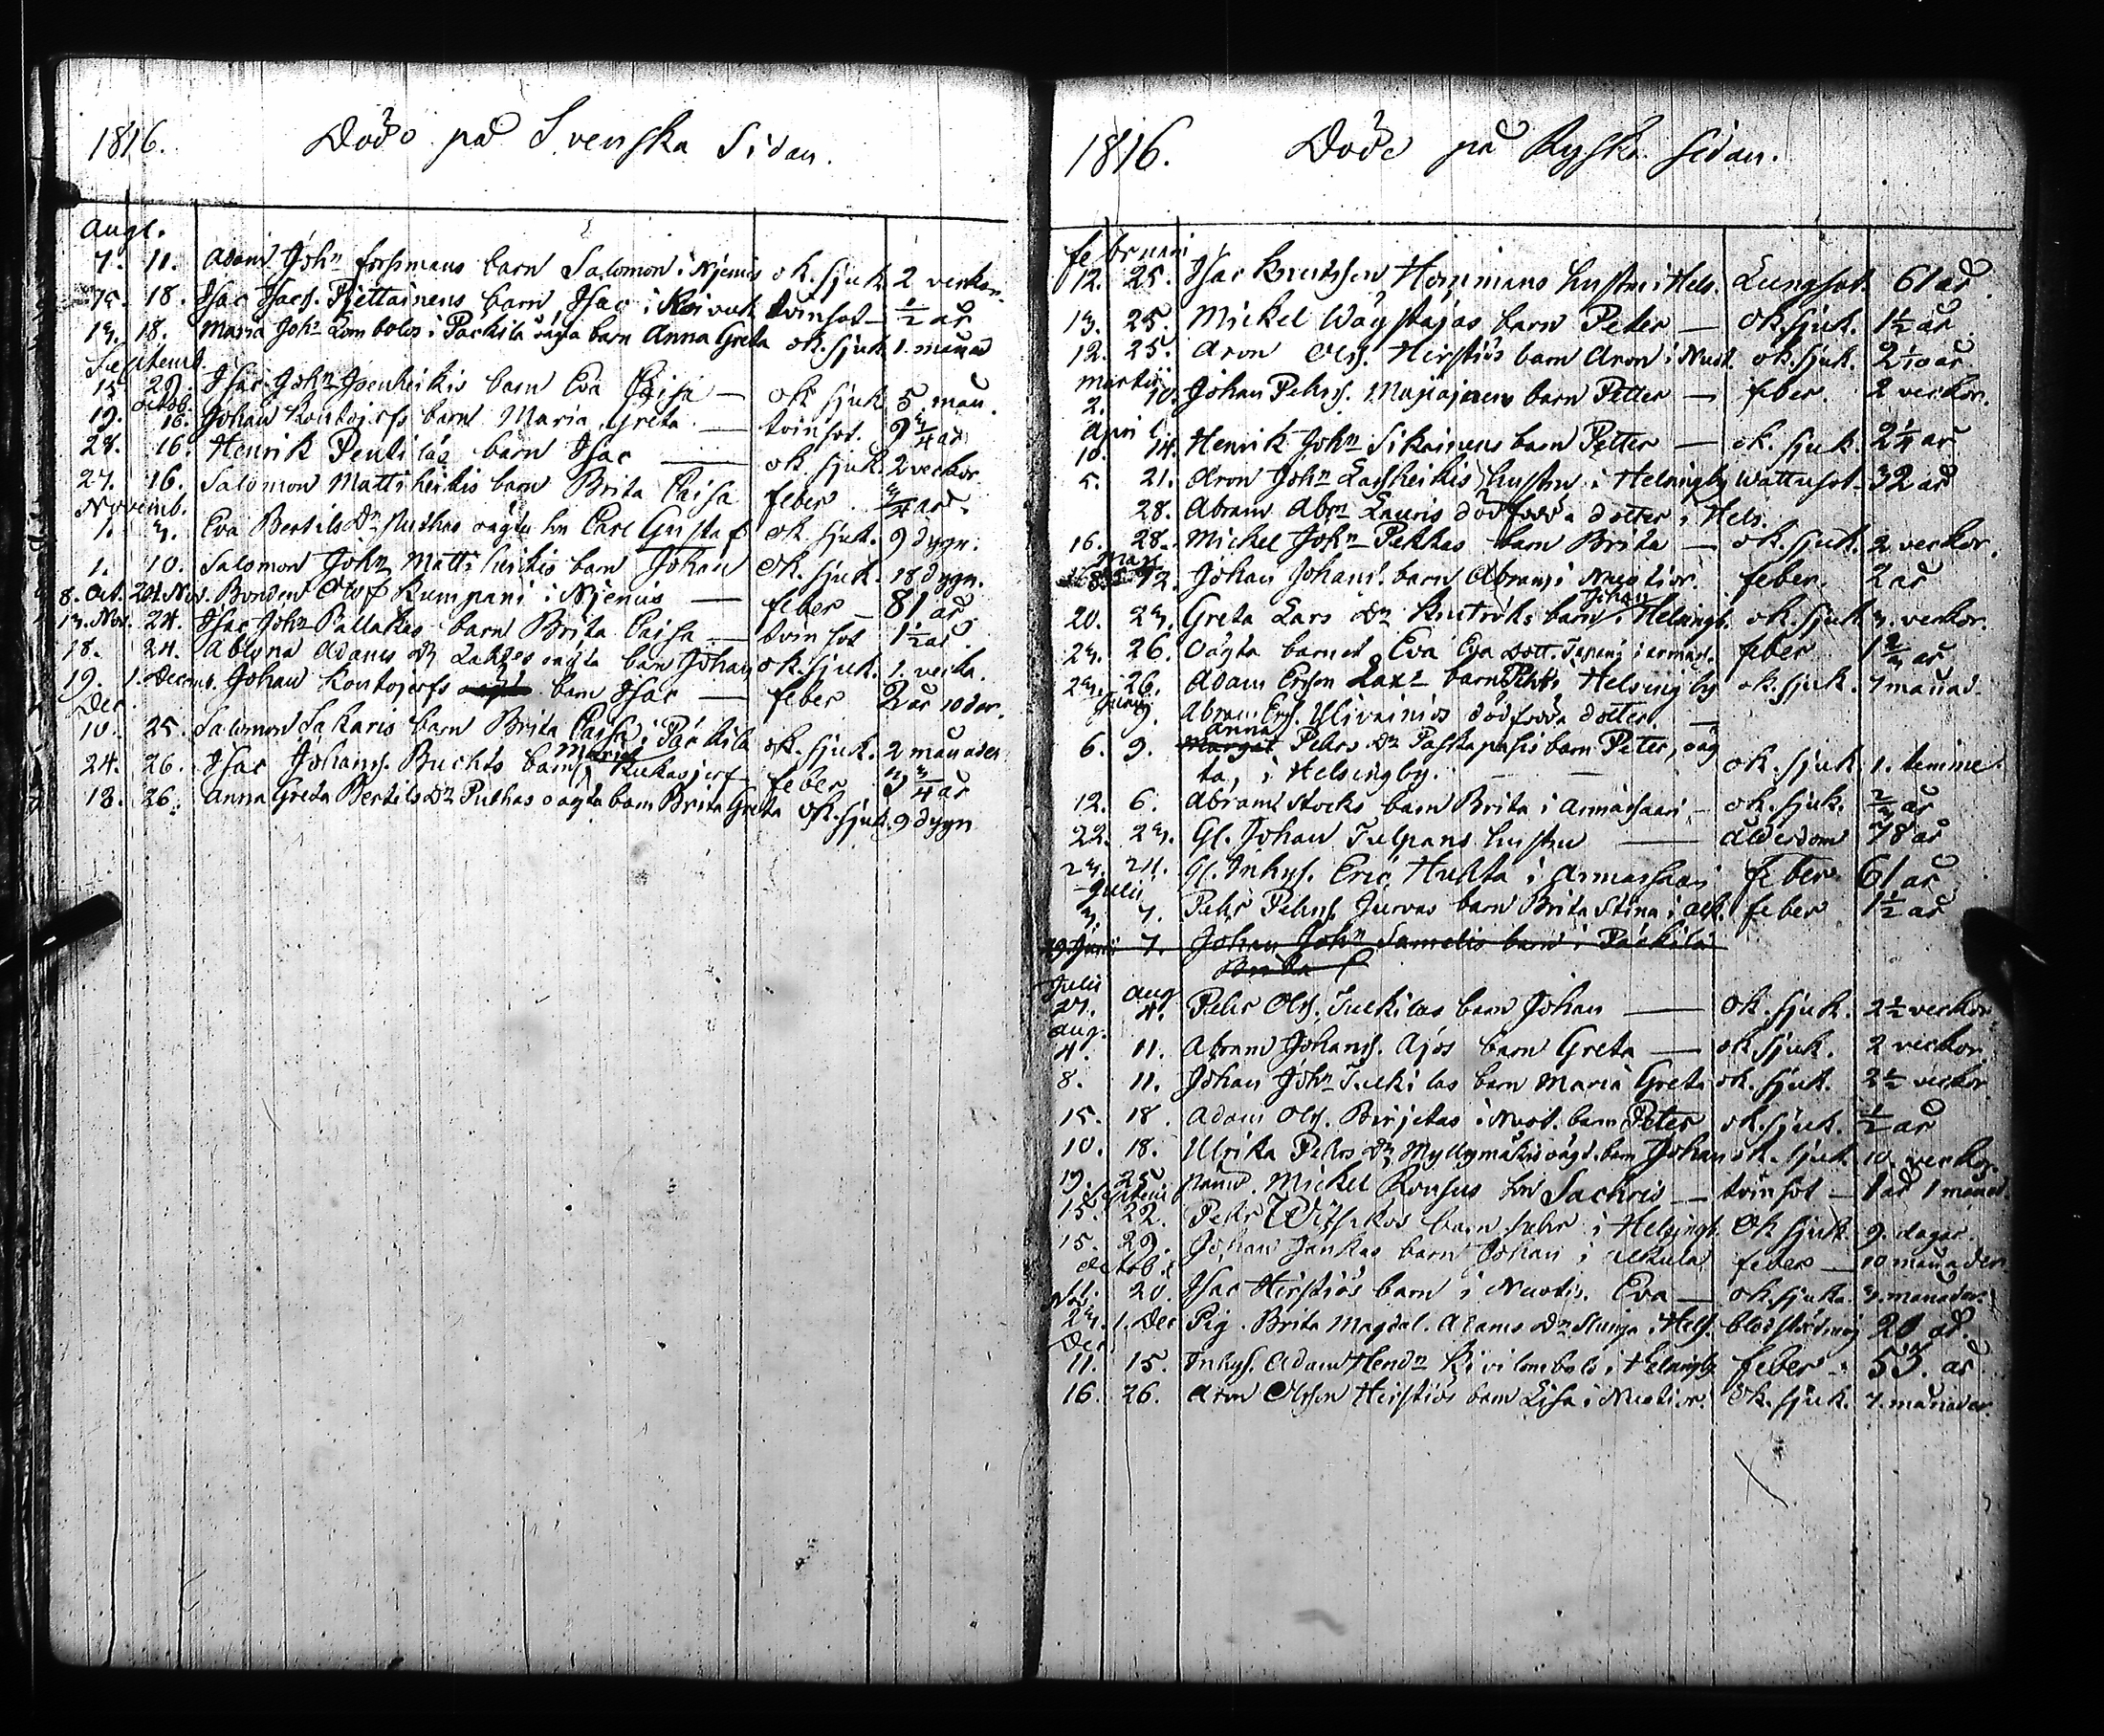 1816. Döde på Svenska Sidan.
Augt.
7. 11. Adam Johⁿ forssmans barn Salomon i Njemis ok. sjuk. 2 veckor.
15. 18. Isac Isacs. Pjettainens barn, Isac i Koivuk tvinsot - ½ år
13. 18. Maria Johⁿ Lombolos i Päckilä oägta barn Anna Greta ok. sjuk 1. månad
Septemb.
15 29. Isac Johⁿ barn Eva Caisa — ok sjuk 5 mån.
octob.
19. 16. Johan Kontojerfs barn Maria Greta — tvinsot. ¾ år
28. 16. Henrik Pentiläs barn Isac — ok. sjuk 2 veckor
27. 16. Salomon Mattiheikis barn Brita Caisa feber ¾ år.
Novemb.
1. 3. Eva Bertils Dʳ Ruthas oägta son Carl Gustaf ok. sjuk. 9 dygn.
1. 10. Salomon Johⁿ Mattiheikis barn Johan ok. sjuk. 18 dygn.
8. Oct. 24. Nov. Bonden Olof Kumpani i Njemis — feber — 81 år
13. Nov. 24. Isac Johⁿ Pallakes barn Brita Caisa — tvinsot 1½ år
18. 24. Adams Dʳ oägta barn Johan ok. sjuk. 1. vecka.
19. 1. Decemb. Johan Kontojerfs oägta barn Isac — feber 2 år 10 dar.
Dec.
10. 25. Salomon Sakaris barn Brita Caisa i Päckilä ok. sjuk. 2 månader
24. 26. Isac Johans. Buchts barn Maria i Kukasjerf feber 3¾ år
18. 26. Anna Greta Bertils Dʳ Ruthas oägta barn Brita Greta ok. sjuk. 9 dygn
1816. Döde på Ryska sidan.
februari
12. 25. Isac Knutsson Hommans hustru i Hels. Lungsot. 61 år.
13. 25. Mickel Wägstajas barn Peter — ok. sjuk. 1½ år
12. 25. Aron Ols. Hirstiös barn Aron i Nuot. ok. sjuk. år
martii
2. 10. Johan Pehrs. barn Petter — feber. 2 veckor.
April
10. 14. Henrik Johⁿ Sikainens barn Petter — ok. sjuk. 2¼ år
5. 21. Aron Johⁿ Lassheikis hustru i Helsingby Wattusot - 32 år
28. Abram Abrⁿ Lauris dödfödda dotter i Hels.
16. 28. Mickel Johⁿ Pekkas barn Brita — ok. sjuk. 2 veckor.
Maji
12. Johan Johans. barn Abram i Nuotior. feber. 2 år
20. 23. Greta Lars Dʳ barn Johan i Helsingb. ok. sjuk 3. veckor.
23. 26. Oägta barnet Eva Eva Dott. Tapani i armas. feber 1⅔ år
23. 26. Adam Ersson Lax barn i Helsingby ok. sjuk. 7 månad.
Junii
9. Abram Ers. Ylivainios dödfödda dotter. —
6. 9. Margat Anna Pehrs Dʳ barn Peter, oäg
ta, i Helsingby. — — ok. sjuk 1. timme.
12. 6. Abram Stocks barn Brita i Armassaari — ok. sjuk. ⅔ år
22. 23. Gl. Johan Tulpans hustru — ålderdom 78 år
23. 24. Gl. Inhys. Eric Hukta i Armassaari feber. 61 år
Julii
3. 7. Pehr Pehrs. Juvas barn Brita Stina i Alk. feber 1½ år
19 Junii 7. Johan Johⁿ Samelis barn i Päckilä
Brita
Julii Aug
27. 4. Pehr Ols. Tulkilas barn Johan — ok. sjuk. 2½ veckor
Aug.
4. 11. Abram Johans. Ajos barn Greta — ok sjuk. 2 veckor
8. 11. Johan Johⁿ Tulkilas barn Maria Greta ok. sjuk. 2½ veckor
15. 18. Adam Ols. Birjetas i Nuot. barn Peter ok. sjuk. ½ år
10. 18. Ulrika Pehrs Dʳ Myllymäkis oägt. barn Johan ok. sjuk 10 veckor.
19. 25. Nämd. Mickel Rousus son Sachris — tvinsot — 1 år 1 månad.
Septem
15. 22. Pehr barn Pehr i Helsingb. ok sjuk. 9. dagar.
15. 29. Johan Jankas barn Johan i Alkula feber — 10 månader
Octob.
11. 20. Isac Hirstiös barn i Nuotio. Eva — ok. sjuka. 3. månader
Nov.
23. 1. Dec Pig. Brita Magdal. Adams Dʳ i Hels. blodstörtning 20 år.
Dec
11. 15. Inhys. Adam Hendⁿ Kivilombolo i Helsingby feber — 53. år
16. 26. Aron Olsson Heistiös barn Lisa i Nuotior. ok. sjuk. 7. månader